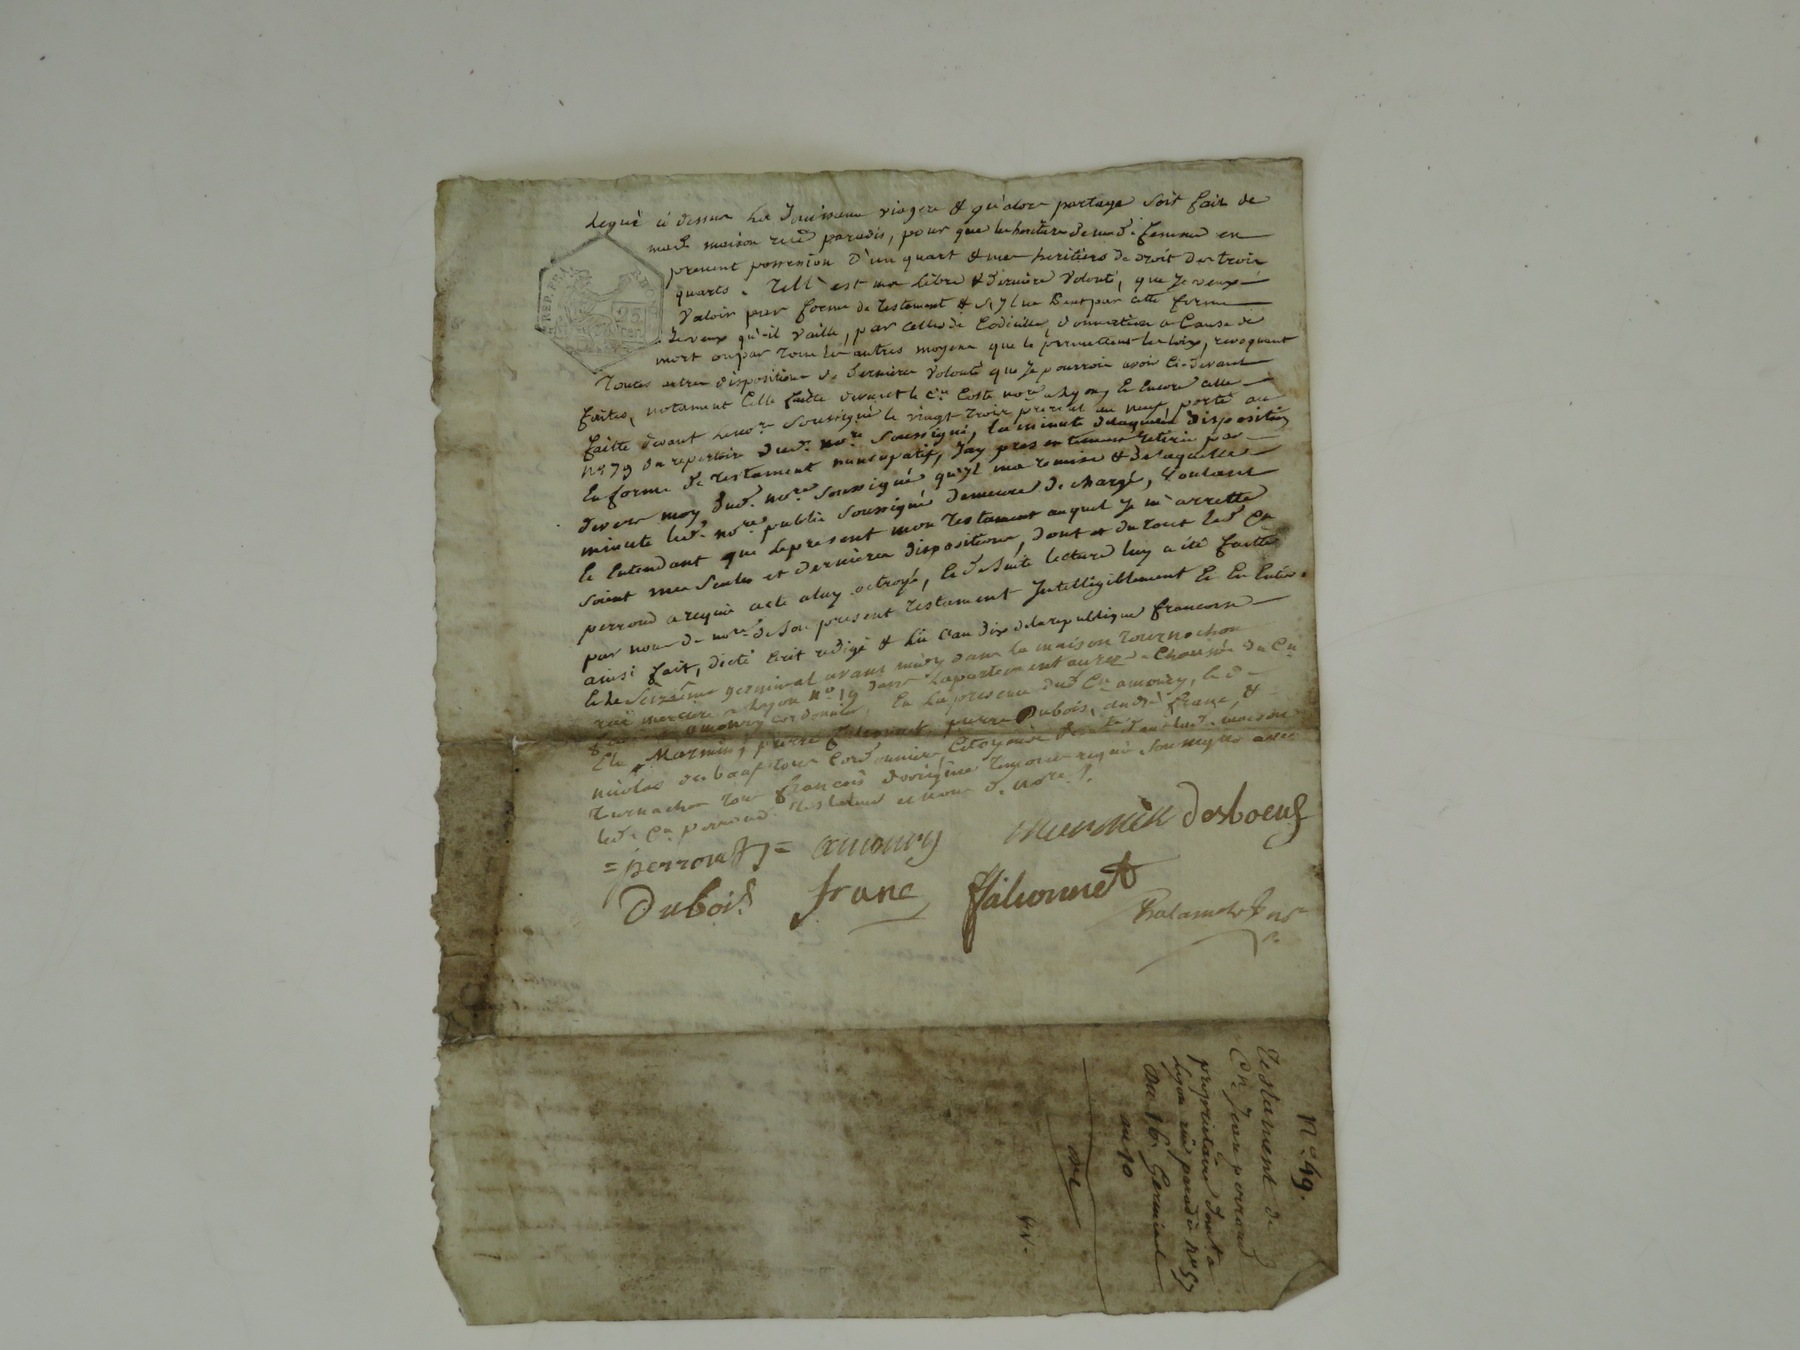 legué ci dessus la Jouissance viagere & qu'alors partage soit fait de
mad. maison rue paradis, pour que les heritiers de mad. femme en
prenent possession d'un quart & mes heritiers de droit des trois
quarts. Tell est ma libre & derniere volonté, que Je veux
REP. FRA.
25
valoir par forme de testament & s'yl ne peut par cette forme
Je veux qu'il vaille, par celle de Codicille, donnation a Cause de
mort ou par tous les autres moyens que le permettent les loix, revoquant
toutes autres dispositions de derniere volonté que Je pourrois avoir Ci-devant
faites, notament Celle faitte devant le Cn. Coste nore. a Lyon, Et Encore celle
faitte devant le nore. soussigné le vingt trois prerial an neuf, porté au
No. 79 du repertoire dud. nore. soussigné, la minute de laquelle disposition
En forme de testament nuncupatif, J'ay presentement retirée par
devers moy dud. nore. soussigné qu'yl ma remise & de laquelle
minute led. nore. public soussigné demeure de chargé, voulant
Et Entendant que le present mon testament auquel Je m'arrette
soient mes seules et dernieres dispositions, dont et du tout led. Cn.
perroud a requis acte a luy octroyé, Et de suite lecture luy a été faitte
par nous d. nore. de son present testament Intelligiblement Et En Entier.
ainsi fait, dicté Ecrit redigé & lû l'an dix de la republique francoise
Et le Seizième germinal avant midy dans la maison tournachon
rue merciere a Lyon No. 19 dans l'apartement au rez de Chaussée du Cn.
amoury cordonnier, En la presence dud. Cn. amoury, de
Marmin, pierre falconnet, pierre Dubois, andré franc, &
nicolas desboeuf tous Cordonniers, Citoyens
turnachon tous francois d'origine temoins requis soussignés avec
led. Cn. perroud testateur et nous d. nore.
= perroud = amoury Marmin desboeuf
Dubois franc ffalconnet
nore
No. 49.
Testament de
Cn. Jean perroud
propriétaire demt. a
Lyon rue paradis No. 57
Du 16 Germinal
an 10